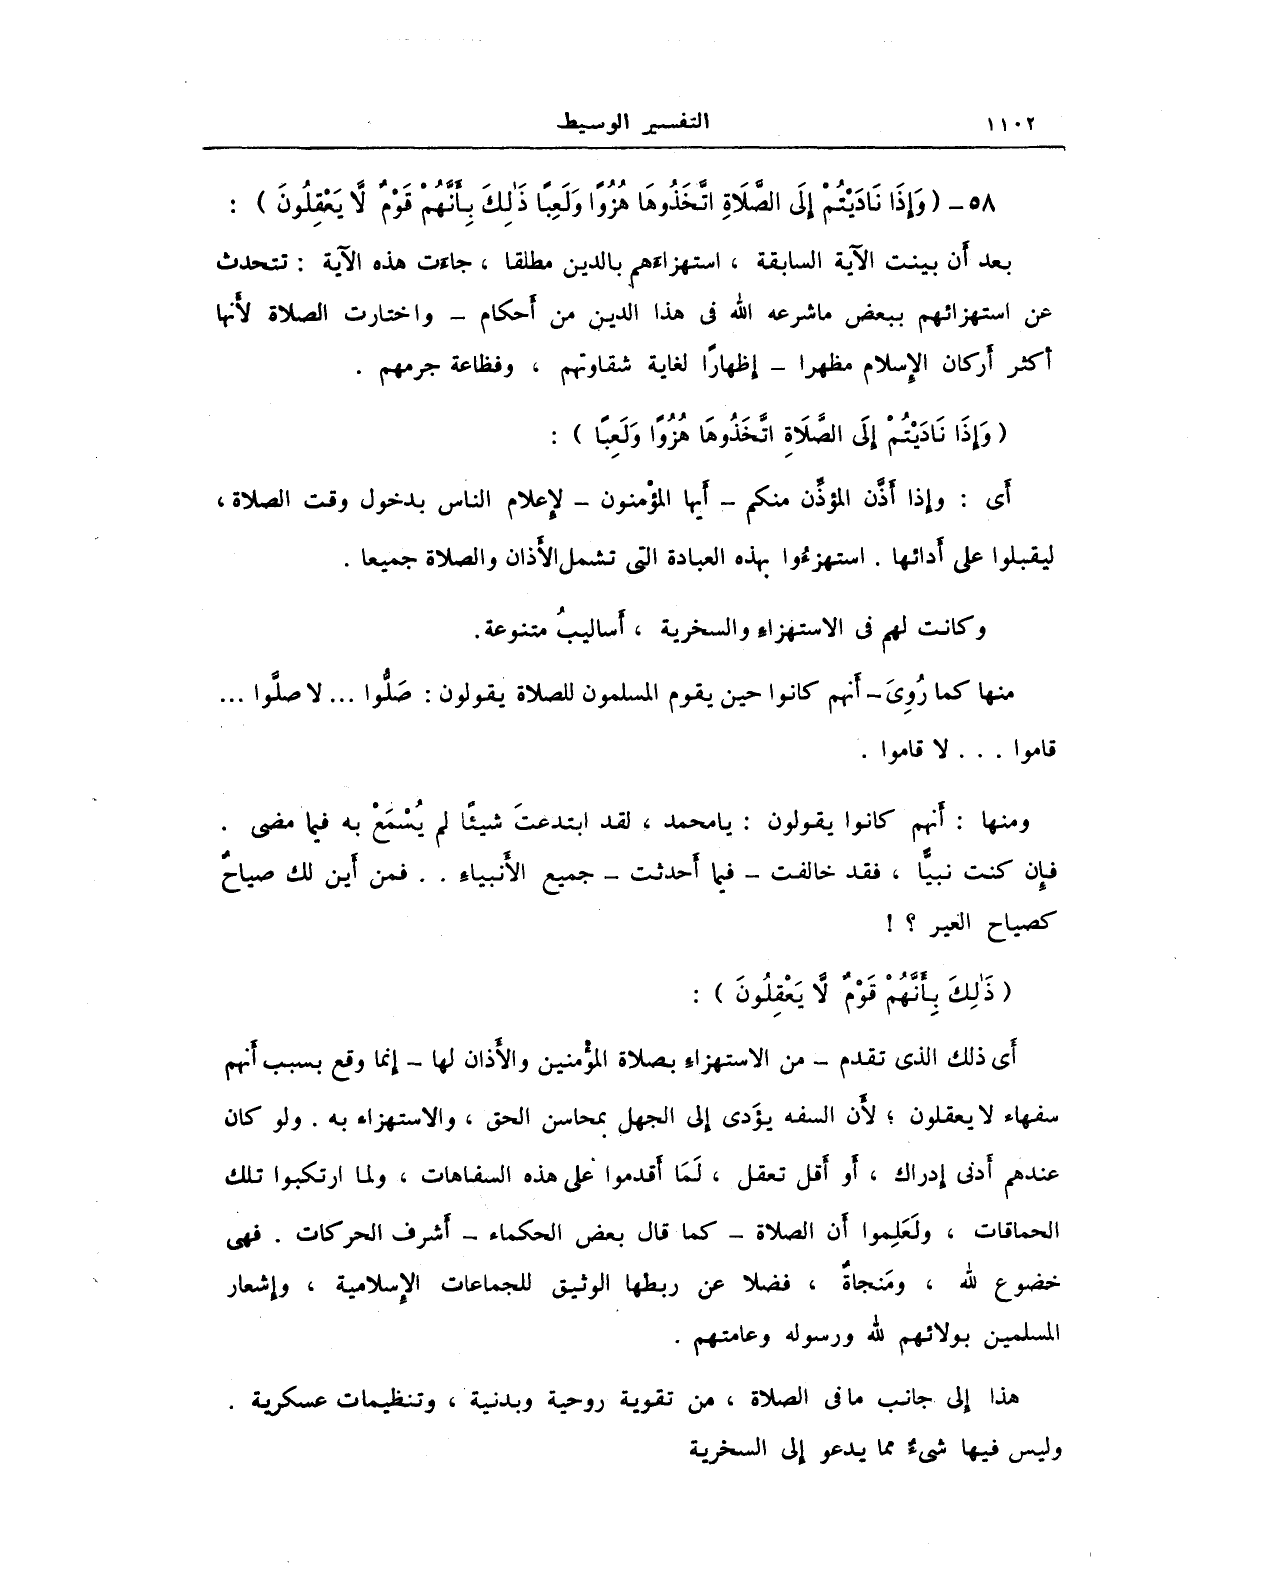 ١١٠٢ التفسير الوسيط
٥٨ـ ( وَإِذَا نَادَيْتُمْ إِلَى الصَّلَاةِ اتَّخَذُوهَا هُزُوًا وَلَعِبًا ذَٰلِكَ بِأَنَّهُمْ قَوْمٌ لَّا يَعْقِلُونَ ) :
بعد أن بينت الآية السابقة ، استهزاءهم بالدين مطلقا ، جاءت هذه الآية : تتحدث
عن استهزائهم ببعض ماشرعه الله فى هذا الدين من أَحكام ــ واختارت الصلاة لأَنها
أكثر أَركان الإِسلام مظهرا ــ إظهارًا لغاية شقاوتهم ، وفظاعة جرمهم .
( وَإِذَا نَادَيْتُمْ إِلَى الصَّلَاةِ اتَّخَذُوهَا هُزُوًا وَلَعِبًا ) :
أَى : وإذا أَذَّن المؤذِّن منكم ــ أَيها المؤْمنون ــ لإِعلام الناس بدخول وقت الصلاة ،
ليقبلوا على أَدائها . استهزءُوا بهذه العبادة التى تشمل الأَذان والصلاة جميعا .
وكانت لهم فى الاستهزاءِ والسخرية ، أَساليبُ متنوعة .
منها كما رُوِىَ ــ أَنهم كانوا حين يقوم المسلمون للصلاة يقولون : صَلُّوا ... لا صلَّوا ...
قاموا . . . لا قاموا .
ومنها : أَنهم كانوا يقولون : يامحمد ، لقد ابتدعتَ شيئًا لم يُسْمَعْ به فيما مضى .
فإِن كنت نبيًّا ، فقد خالفت ــ فيما أَحدثت ــ جميع الأَنبياءِ . . فمن أَين لك صياحٌ
كصياح العير ؟ !
( ذَٰلِكَ بِأَنَّهُمْ قَوْمٌ لَّا يَعْقِلُونَ ) :
أَى ذلك الذى تقدم ــ من الاستهزاءِ بصلاة المؤْمنين والأَذان لها ــ إنما وقع بسبب أَنهم
سفهاء لا يعقلون ؛ لأَن السفه يؤَدى إلى الجهل بمحاسن الحق ، والاستهزاء به . ولو كان
عندهم أَدنى إدراك ، أَو أَقل تعقل ، لَمَا أَقدموا على هذه السفاهات ، ولما ارتكبوا تلك
الحماقات ، ولَعَلِموا أَن الصلاة ــ كما قال بعض الحكماء ــ أَشرف الحركات . فهى
خضوع لله ، ومَنجاةٌ ، فضلا عن ربطها الوثيق للجماعات الإِسلامية ، وإشعار
المسلمين بولائهم لله ورسوله وعامتهم .
هذا إلى جانب ما فى الصلاة ، من تقوية روحية وبدنية ، وتنظيمات عسكرية .
وليس فيها شىءٌ مما يدعو إلى السخرية